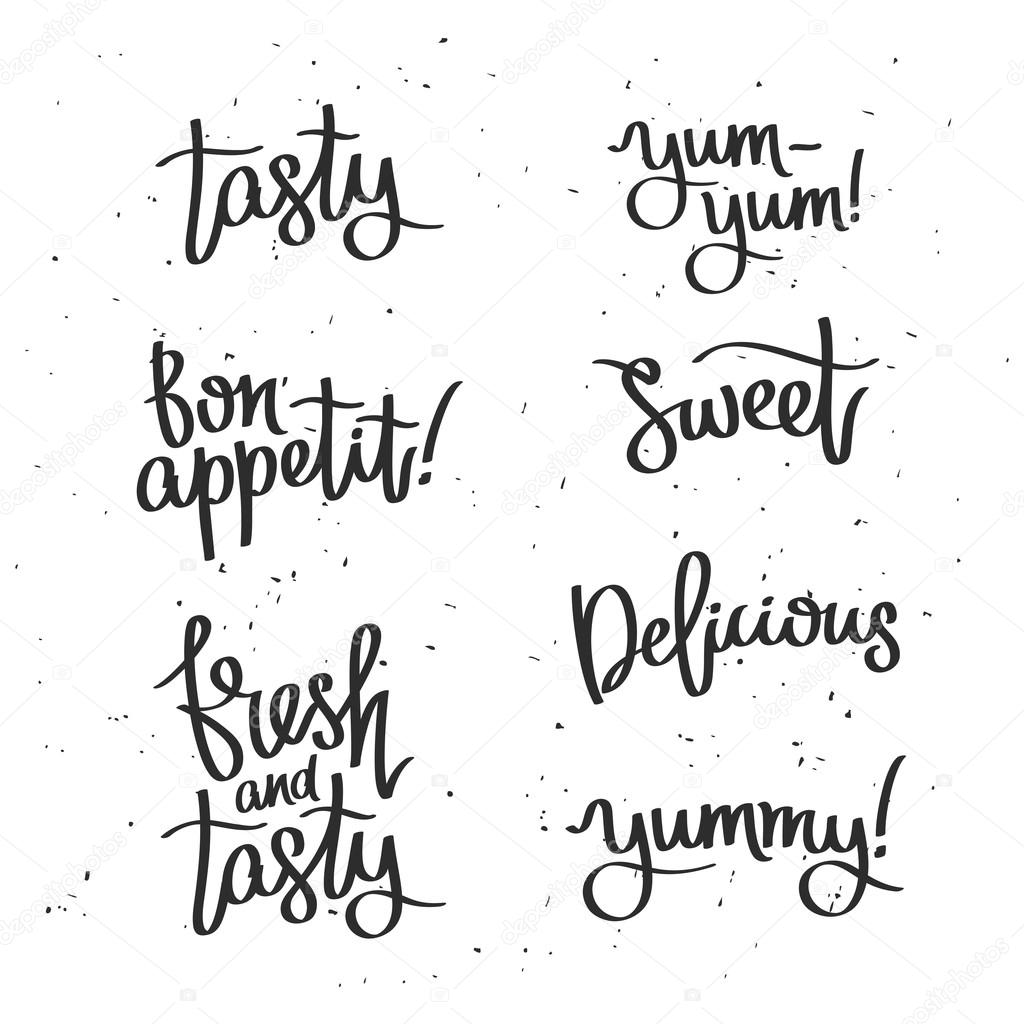 tasty
yum-
yum!
Bon
appetit!
Sweet
fresh
and
tasty
Delicious
yummy!
depositphotos